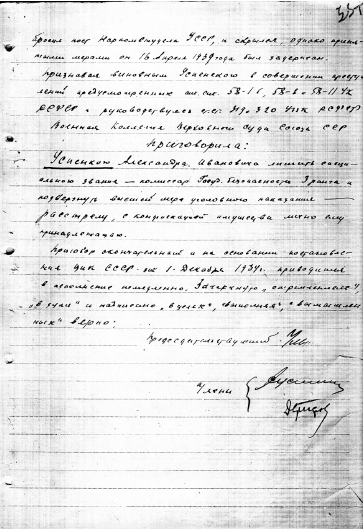 335
бросил пост Наркомвнудела УССР, и скрылся, однако приня-
тыми мерами он 16 Апреля 1939 года был задержан.
Признавая виновным Успенского в совершении преступ-
лений предусмотренных ст. ст. 58-1б, 58-8 и 58-11 УК
РСФСР и руководствуясь ст. ст. 319 320 УПК РСФСР
Военная Коллегия Верховного Суда Союза ССР
Приговорила:
Успенского Александра Ивановича лишить специ-
ального звания — комиссар Госуд. безопасности 3 ранга и
подвергнуть высшей мере уголовного наказания —
расстрелу, с конфискацией имущества лично ему
принадлежащего.
Приговор окончательный и на основании постановле-
ния ЦИК СССР от 1-Декабря 1934г. приводится
в исполнение немедленно. Зачеркнуто
и надписано
верно:
Председательствующий
Члены